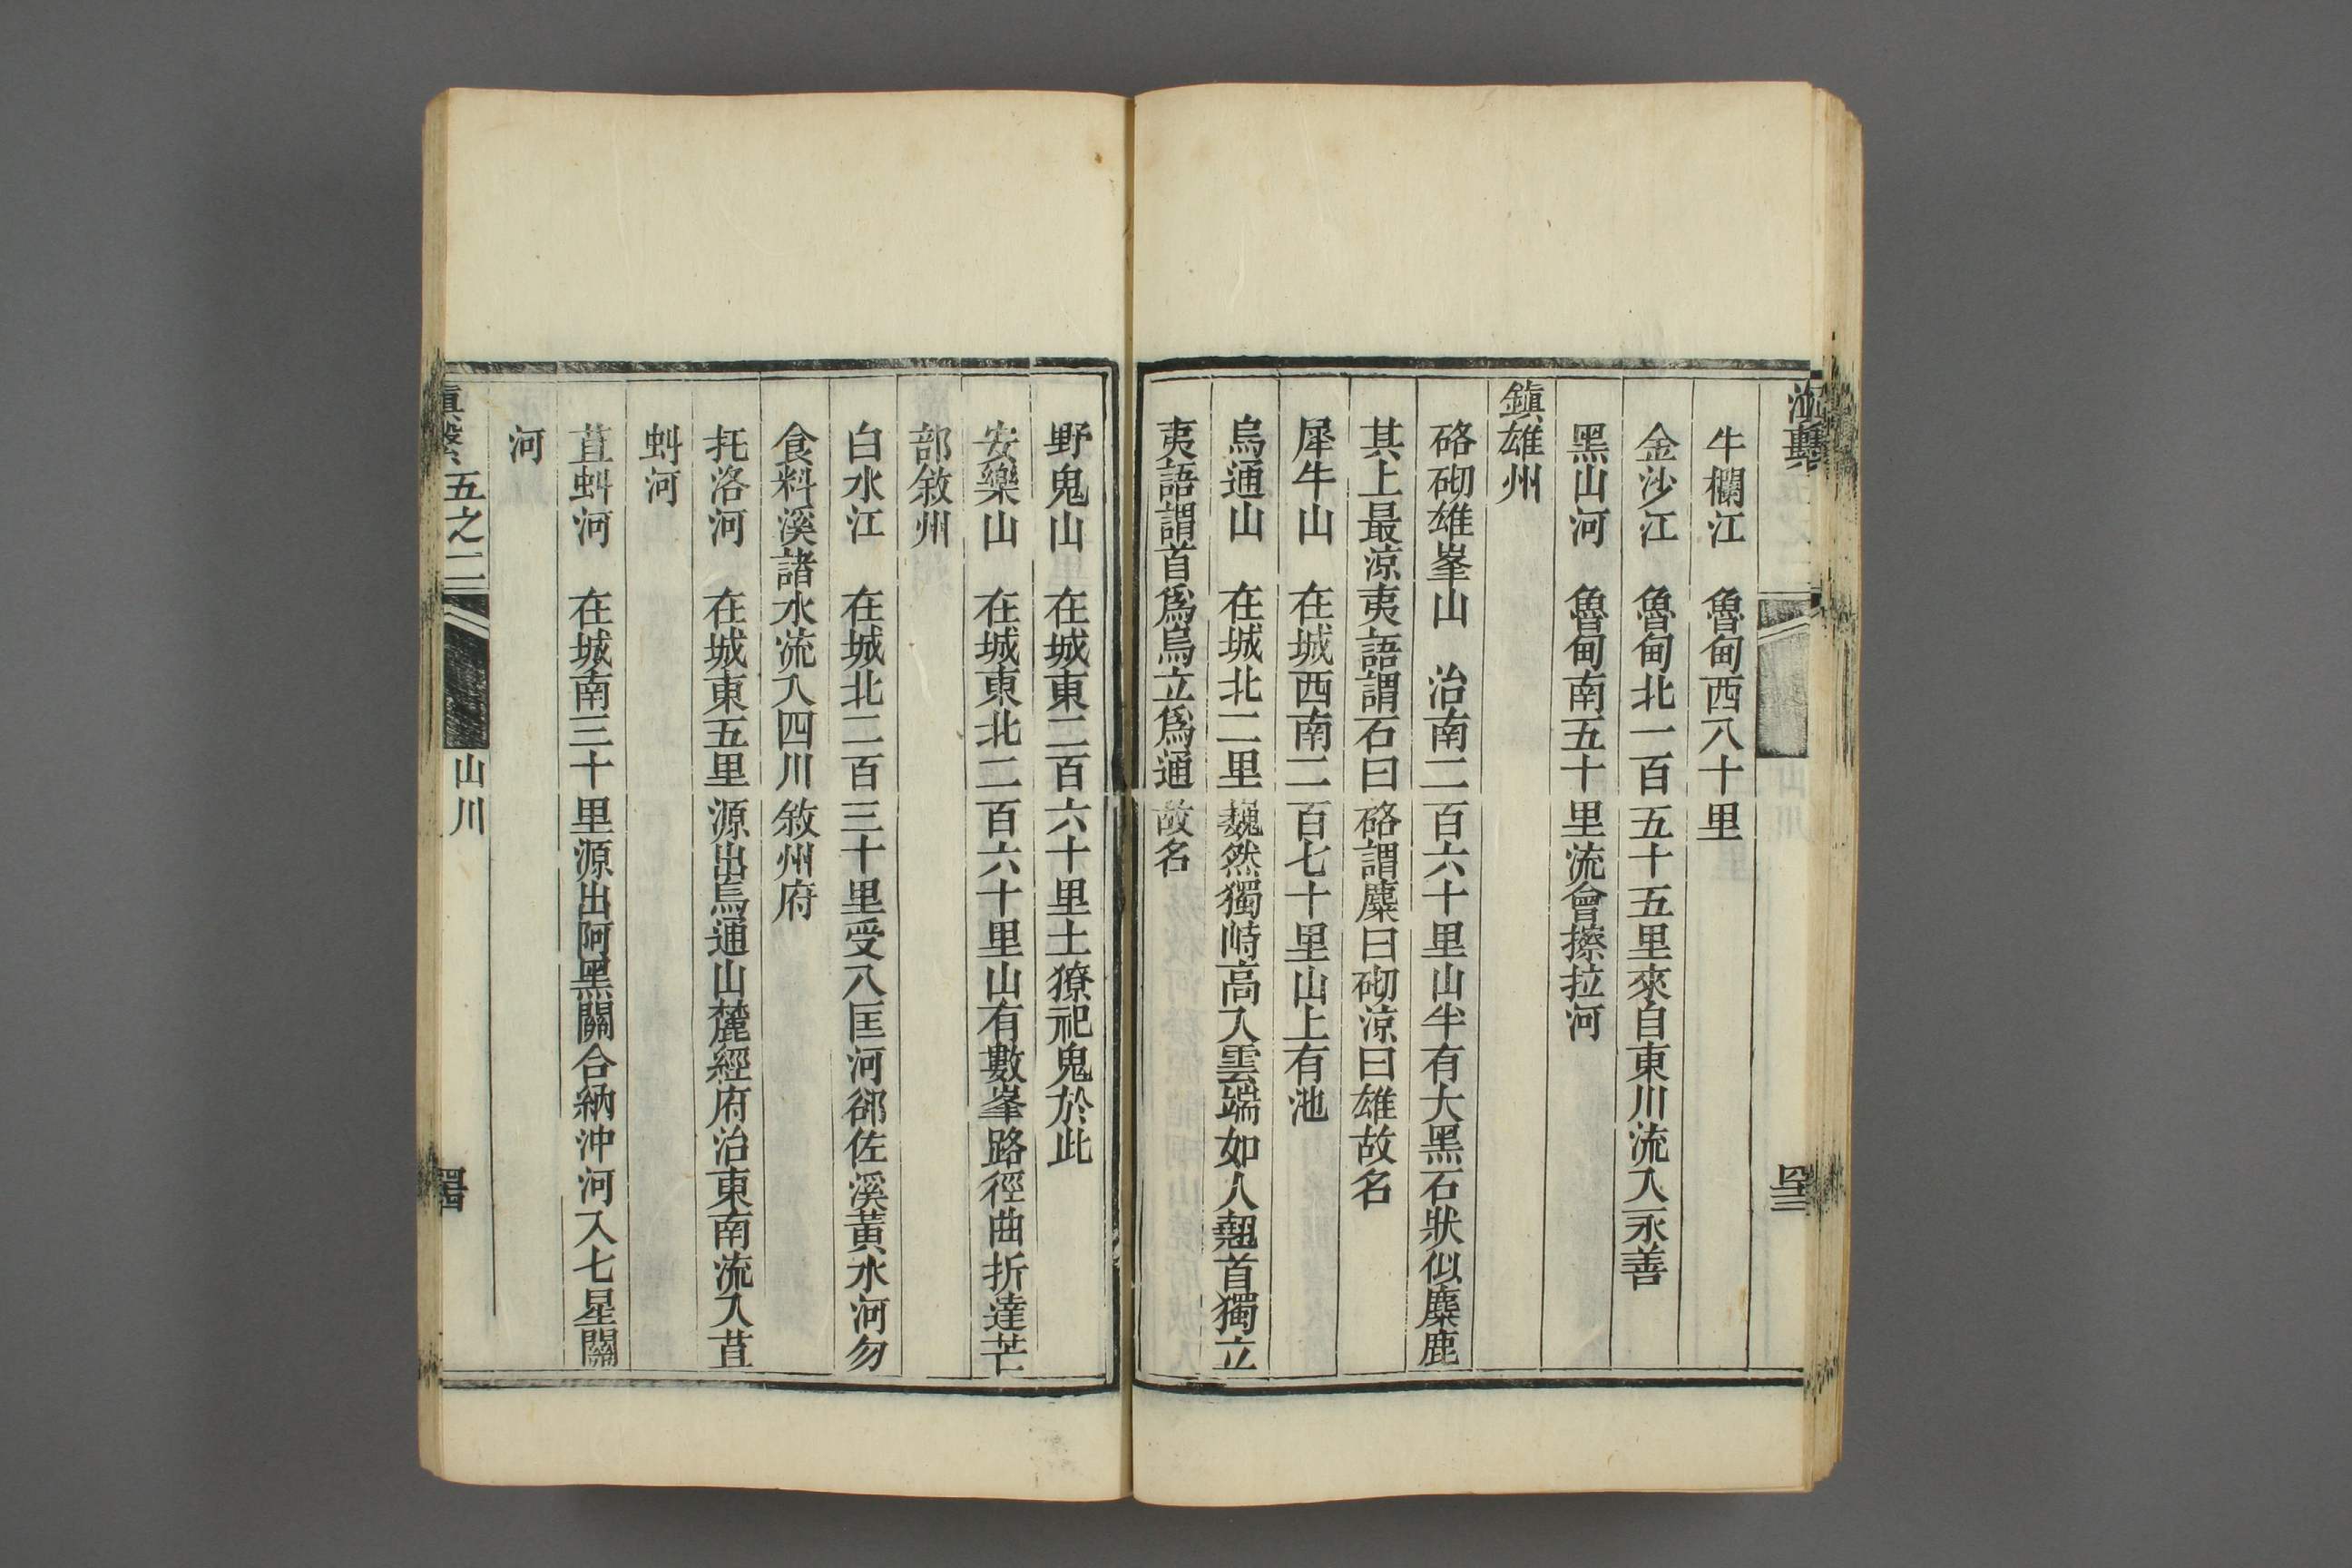 牛欄江　魯甸西八十里
金沙江　魯甸北一百五十五里來自東川流入永善
黑山河　魯甸南五十里流會擦拉河
鎮雄州
硌砌雄峯山　治南二百六十里山半有大黑石狀似麋鹿
其上最涼夷語謂石曰硌謂麋曰砌涼曰雄故名
犀牛山　在城西南二百七十里山上有池
烏通山　在城北二里巍然獨峙高入雲端如人翹首獨立
夷語謂首爲烏立爲通故名
野鬼山　在城東二百六十里土獠祀鬼於此
安樂山　在城東北二百六十里山有數峯路徑曲折達芒
部敘州
白水江　在城北二百三十里受八匡河𨛦佐溪黃水河勿
食料溪諸水流入四川敘州府
托洛河　在城東五里源出烏通山麓經府治東南流入苴
蚪河
苴蚪河　在城南三十里源出阿黑關合納沖河入七星關
河
滇繫　五之二　山川